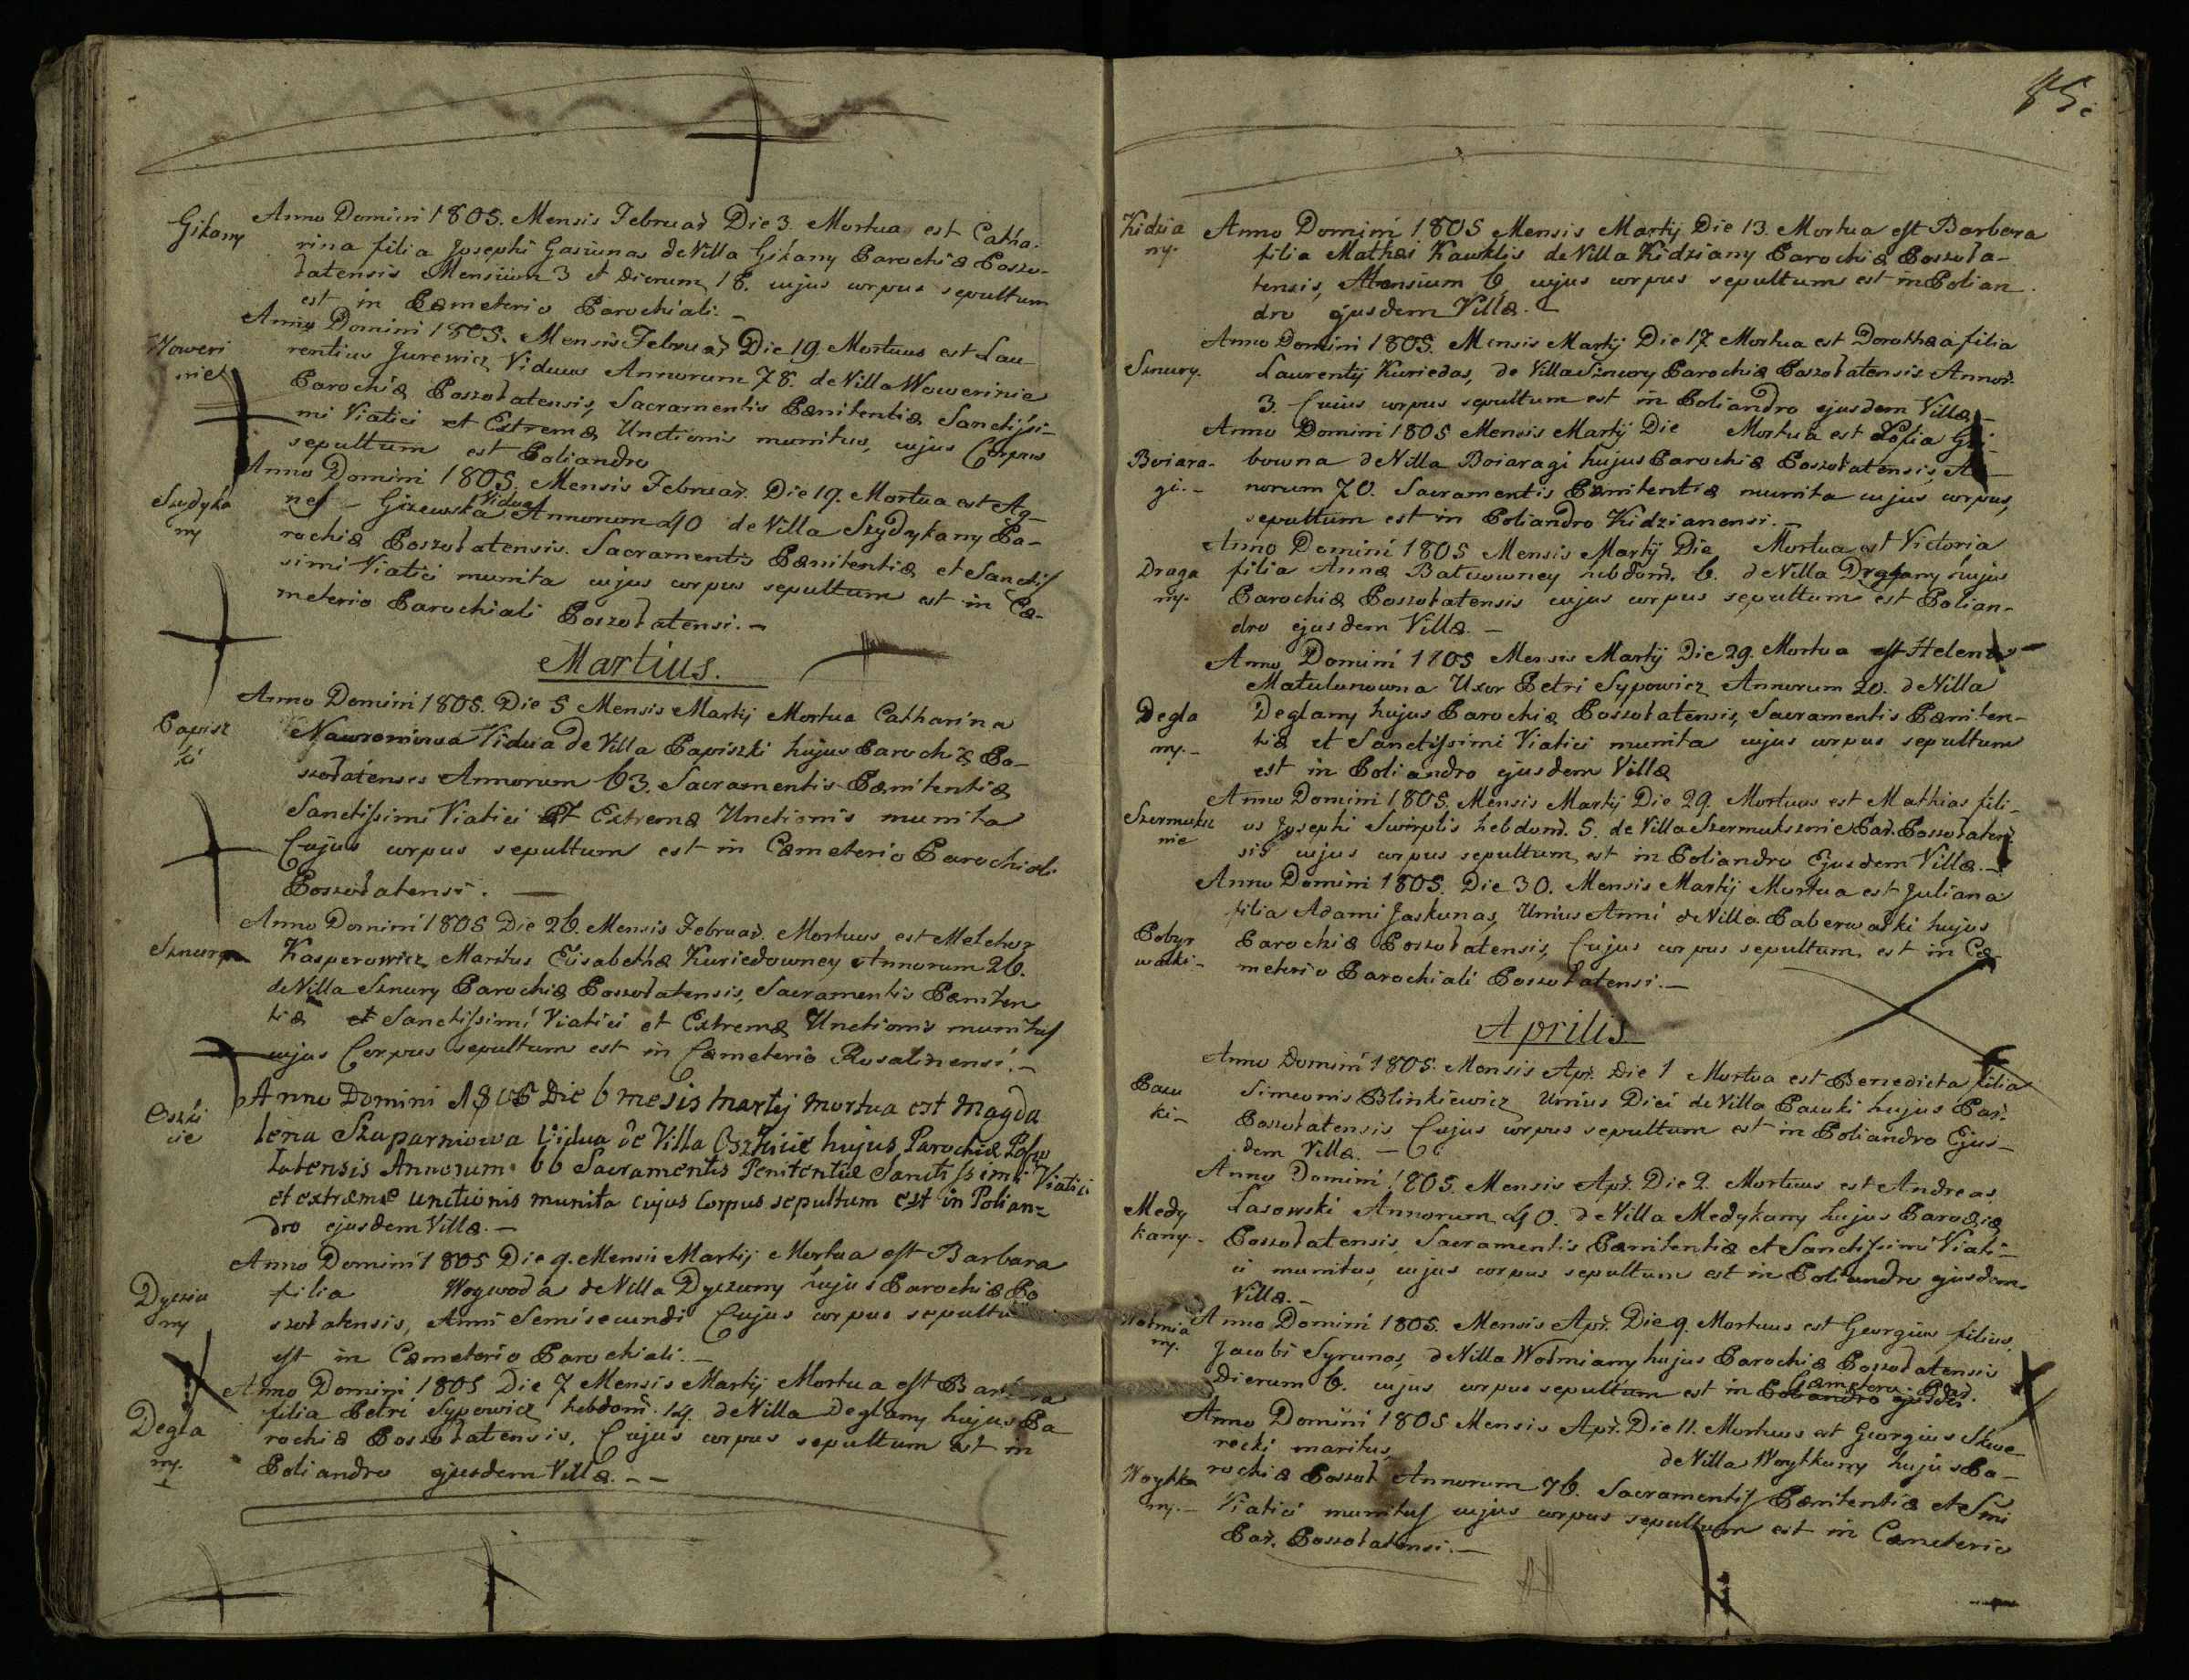 Gikany
Anno Domini 1805. Mensis Februar̃ Die 3. Mortua est Catha-
rina filia Josephi Gasiunas de Villa Gikany Parochiæ Poszo-
łatensis Mensium 3 et dierum 18. cujus corpus sepultum
est in Cæmeterio Parochiali. –
Woweri
nie
Anno Domini 1805. Mensis Februar̃ Die 19. Mortuus est Lau-
rentius Jurewicz Viduus Annorum 78. de Villa Wowerinie
Parochiæ Poszołatensis, Sacramentis Pænitentiæ Sanctissi-
mi Viatici et Extremæ Unctionis munitus, cujus Corpus
sepultum est Poliandro
Szydyka
ny
Anno Domini 1805. Mensis Februar̃. Die 19. Mortua est Ag-
nes – Gizewska Vidua Annorum 40 de Villa Szydykany Pa-
rochiæ Poszołatensis. Sacramentis Pænitentiæ et Sanctis
simi Viatici munita cujus corpus sepultum est in Cæ-
meterio Parochiali Poszołatensi. –
Martius.
Papisz
ki
Anno Domini 1805. Die 5 Mensis Martij Mortua Catharina
Vidua de Villa Papiszki hujus Parochiæ Po-
szołatensis Annorum 63. Sacramentis Pænitentiæ
Sanctissimi Viatici Et Extremæ Unctionis munita
Cujus corpus sepultum est in Cæmeterio Parochiali
Poszołatensi. –
Sznury
Anno Domini 1805 Die 26. Mensis Februar̃. Mortuus est Melchor
Kasperowicz Maritus Elisabethæ Kuriedowney Annorum 26.
de Villa Sznury Parochiæ Poszołatensis, Sacramentis Pæniten
tiæ et Sanctissimi Viatici et Extremæ Unctionis munitus
cujus Corpus sepultum est in Cæmeterio Rosalinensi. –
Anno Domini 1805 Die 6 mesis Martij mortua est Magda
lena Szaparniowa Vidua de Villa hujus Parochiæ Poszo
łatensis Annorum 66 Sacramentis Penitentiæ Sanctissimi Viatici
et extremæ unctionis munita cujus Corpus sepultum est in Polian-
dro ejusdem Villæ. –
Dyczu
ny
Anno Domini 1805 Die 9. Mensis Martij Mortua est Barbara
filia Woywoda de Villa Dyczuny hujus Parochiæ Po
szołatensis, Anni Semisecundi Cujus corpus sepultu
est in Cæmeterio Parochiali. –
Degla
ny.
Anno Domini 1805 Die 7 Mensis Martij Mortua est Barbara
filia Petri Sypowicz hebdom̃. 14. de Villa Deglany hujus Pa
rochiæ Poszołatensis. Cujus corpus sepultum est in
Poliandro ejusdem Villæ. – –
85.
Kidzia
ny.
Anno Domini 1805 Mensis Martij Die 13. Mortua est Barbara
filia Mathæi Kawklis de Villa Kidziany Parochiæ Poszoła-
tensis, Mensium 6 cujus corpus sepultum est in Polian
dro ejusdem Villæ. –
Sznury.
Anno Domini 1805. Mensis Martij Die 17 Mortua est Dorothæa filia
Laurentij Kuriedas, de Villa Sznury Parochiæ Poszołatensis Annor̃.
3. Cuius corpus sepultum est in Poliandro ejusdem Villæ. –
Boiara-
gi. –
Anno Domini 1805 Mensis Martij Die Mortua est Zofia
bowna de Villa Boiaragi hujus Parochiæ Poszołatensis, An-
norum 70. Sacramentis Pænitentiæ munita cujus corpus,
sepultum est in Poliandro Kidzianensi. –
Draga
ny.
Anno Domini 1805 Mensis Martij Die Mortua est Victoria
filia Annæ Batuowney hebdom̃. 6. de Villa Dragany hujus
Parochiæ Poszołatensis cujus corpus sepultum est Polian-
dro ejusdem Villæ. –
Degla
ny. –
Anno Domini 1805 Mensis Martij Die 29. Mortua est Helena
Matulunowna Uxor Petri Sypowicz Annorum 20. de Villa
Deglany hujus Parochiæ Poszołatensis, Sacramentis Pæniten-
tiæ et Sanctissimi Viatici munita cujus corpus sepultum
est in Poliandro ejusdem Villæ
Szermuksz
nie
Anno Domini 1805. Mensis Martij Die 29. Mortuus est Mathias fili-
us Josephi Swirplis hebdom̃. 5. de Villa Szermuksznie Par̃. Poszołaten-
sis cujus corpus sepultum est in Poliandro Ejusdem Villæ. –
Pobyr
walki –
Anno Domini 1805. Die 30. Mensis Martij Mortua est Juliana
filia Adami Jaskunas, Unius Anni de Villa Paberwalki hujus
Parochiæ Poszołatensis, Cujus corpus sepultum est in Cæ-
meterio Parochiali Poszołatensi. –
Aprilis
Pacu
ki –
Anno Domini 1805. Mensis Apr̃. Die 1 Mortua est Benedicta filia
Simeonis Blinkiewicz Unius Diei de Villa Pacuki hujus Par̃.
Poszołatensis Cujus corpus sepultum est in Poliandro Ejus-
dem Villæ. –
Medy
kany –
Anno Domini 1805. Mensis Apr̃. Die 2. Mortuus est Andreas
Lasowski Annorum 40. de Villa Medykany hujus Parochiæ
Poszołatensis, Sacramentis Pænitentiæ et Sanctissimi Viati-
ci munitus, cujus corpus sepultum est in Poliandro ejusdem
Villæ. –
Wołmia
ny.
Anno Domini 1805. Mensis Apr̃. Die 9. Mortuus est Georgius filius
Jacobi Syrunas, de Villa Wołmiany hujus Parochiæ Poszołatensis
Dierum 6. cujus corpus sepultum est in Poliandro ejusdem Cæmeterio Par̃.
Woytka
ny. –
Anno Domini 1805 Mensis Apr̃. Die 11. Mortuus est Georgius Skwe
recki maritus, de Villa Woytkany hujus Pa-
rochiæ Poszoł Annorum 76. Sacramentis Pænitentiæ et Smi
Viatici munitus cujus corpus sepultum est in Cæmeterio
Par̃. Poszołatensi. –